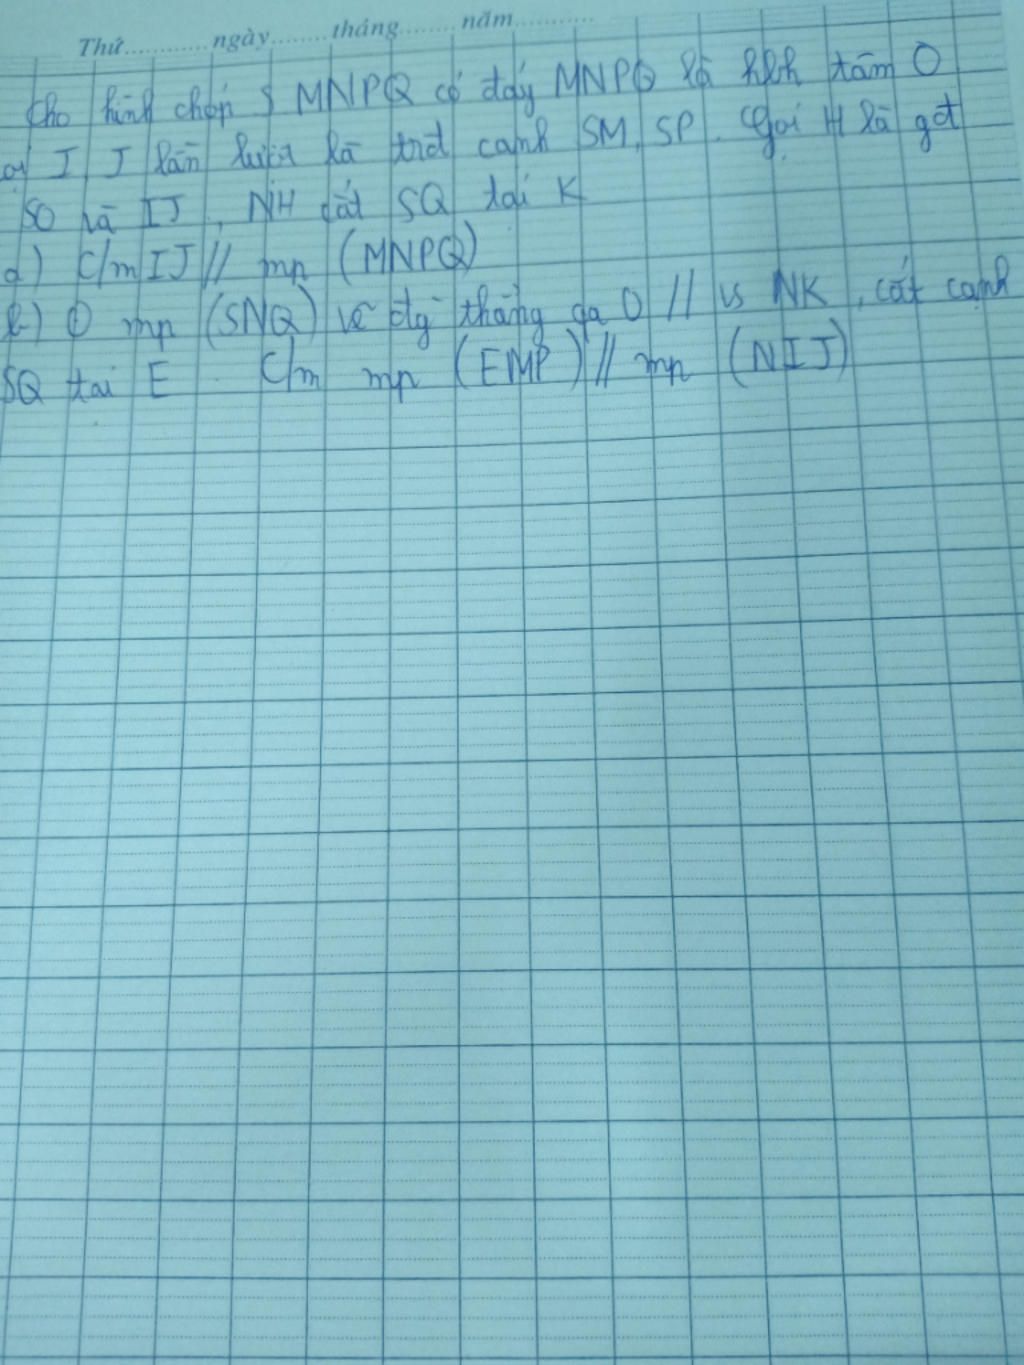 Thứ............ngày........tháng........năm............
Cho hình chóp S MNPQ có đáy MNPQ là hbh tâm O
gọi I, J lần lượt là trđ cạnh SM, SP. Gọi H là gđ
SO và IJ, NH cắt SQ tại K
a) C/m IJ // mp (MNPQ)
b) mp (SNQ) vẽ đg thẳng qa O // vs NK, cắt cạnh
SQ tại E. C/m mp (EMP) // mp (NIJ)